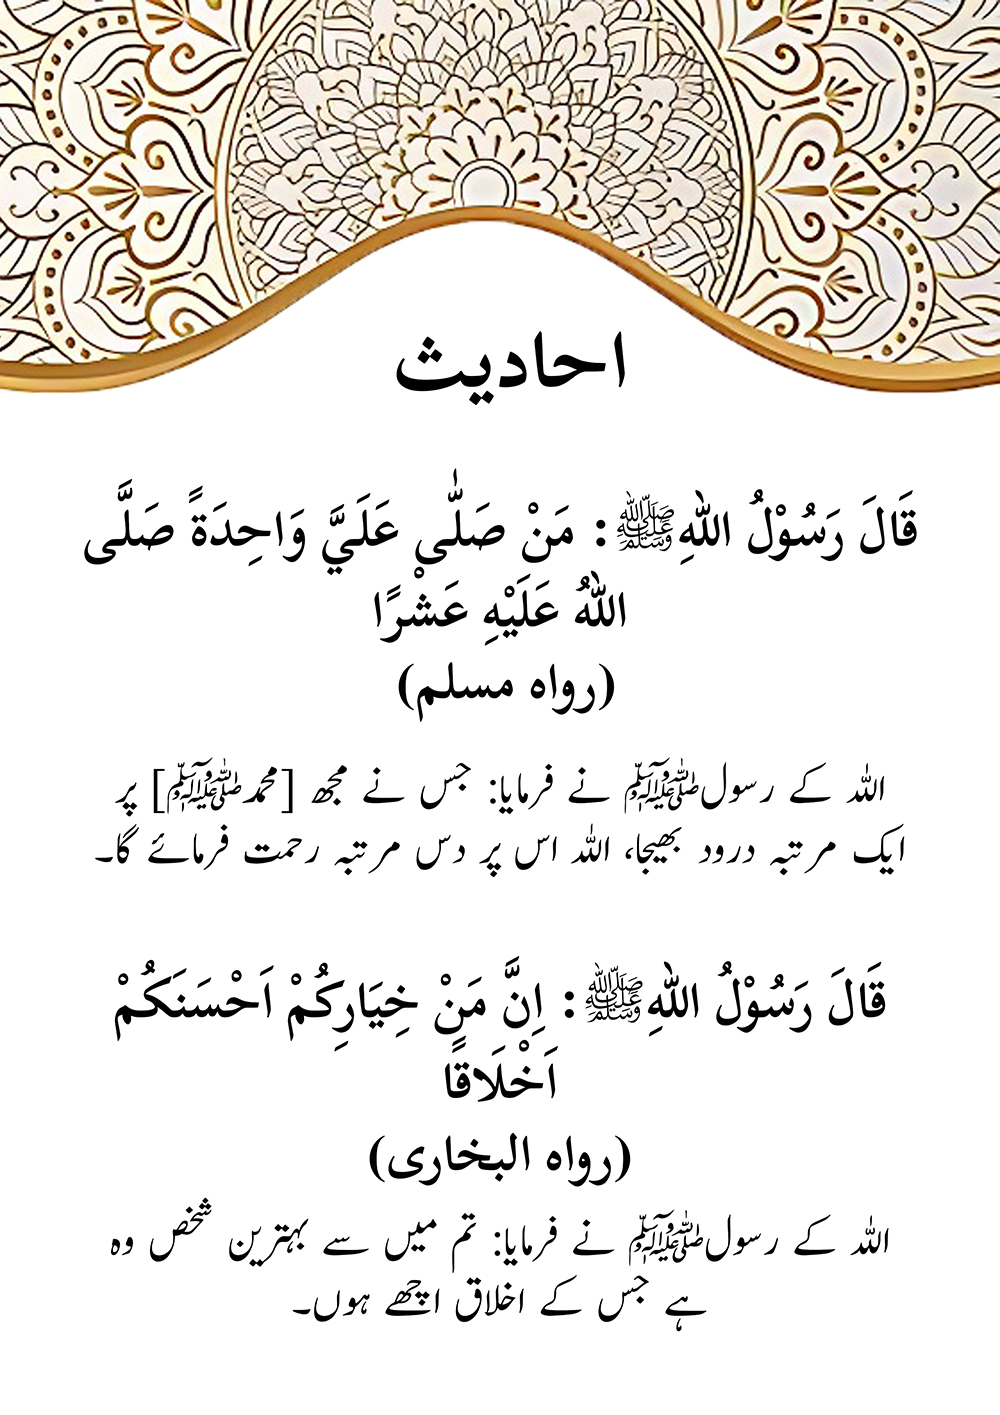 احادیث
قَالَ رَسُوْلُ اللهِ ﷺ: مَنْ صَلّٰی عَلَيَّ وَاحِدَةً صَلَّی
اللهُ عَلَيْهِ عَشْرًا
(رواہ مسلم)
اللہ کے رسول ﷺ نے فرمایا: جس نے مجھ [محمد ﷺ] پر
ایک مرتبہ درود بھیجا، اللہ اس پر دس مرتبہ رحمت فرمائے گا۔
قَالَ رَسُوْلُ اللهِ ﷺ: اِنَّ مَنْ خِيَارِكُمْ اَحْسَنَكُمْ
اَخْلَاقًا
(رواہ البخاری)
اللہ کے رسول ﷺ نے فرمایا: تم میں سے بہترین شخص وہ
ہے جس کے اخلاق اچھے ہوں۔